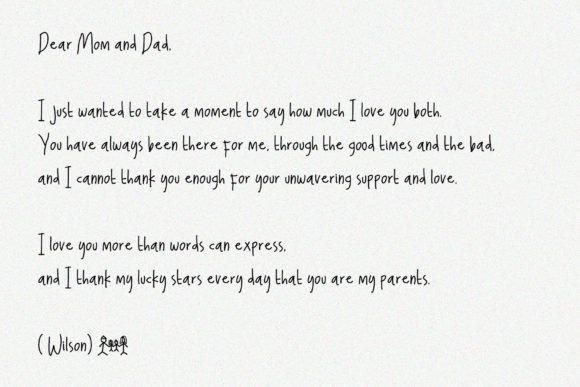 Dear Mom and Dad,
I just wanted to take a moment to say how much I love you both.
You have always been there for me, through the good times and the bad,
and I cannot thank you enough for your unwavering support and love.
I love you more than words can express,
and I thank my lucky stars every day that you are my parents.
(Wilson)